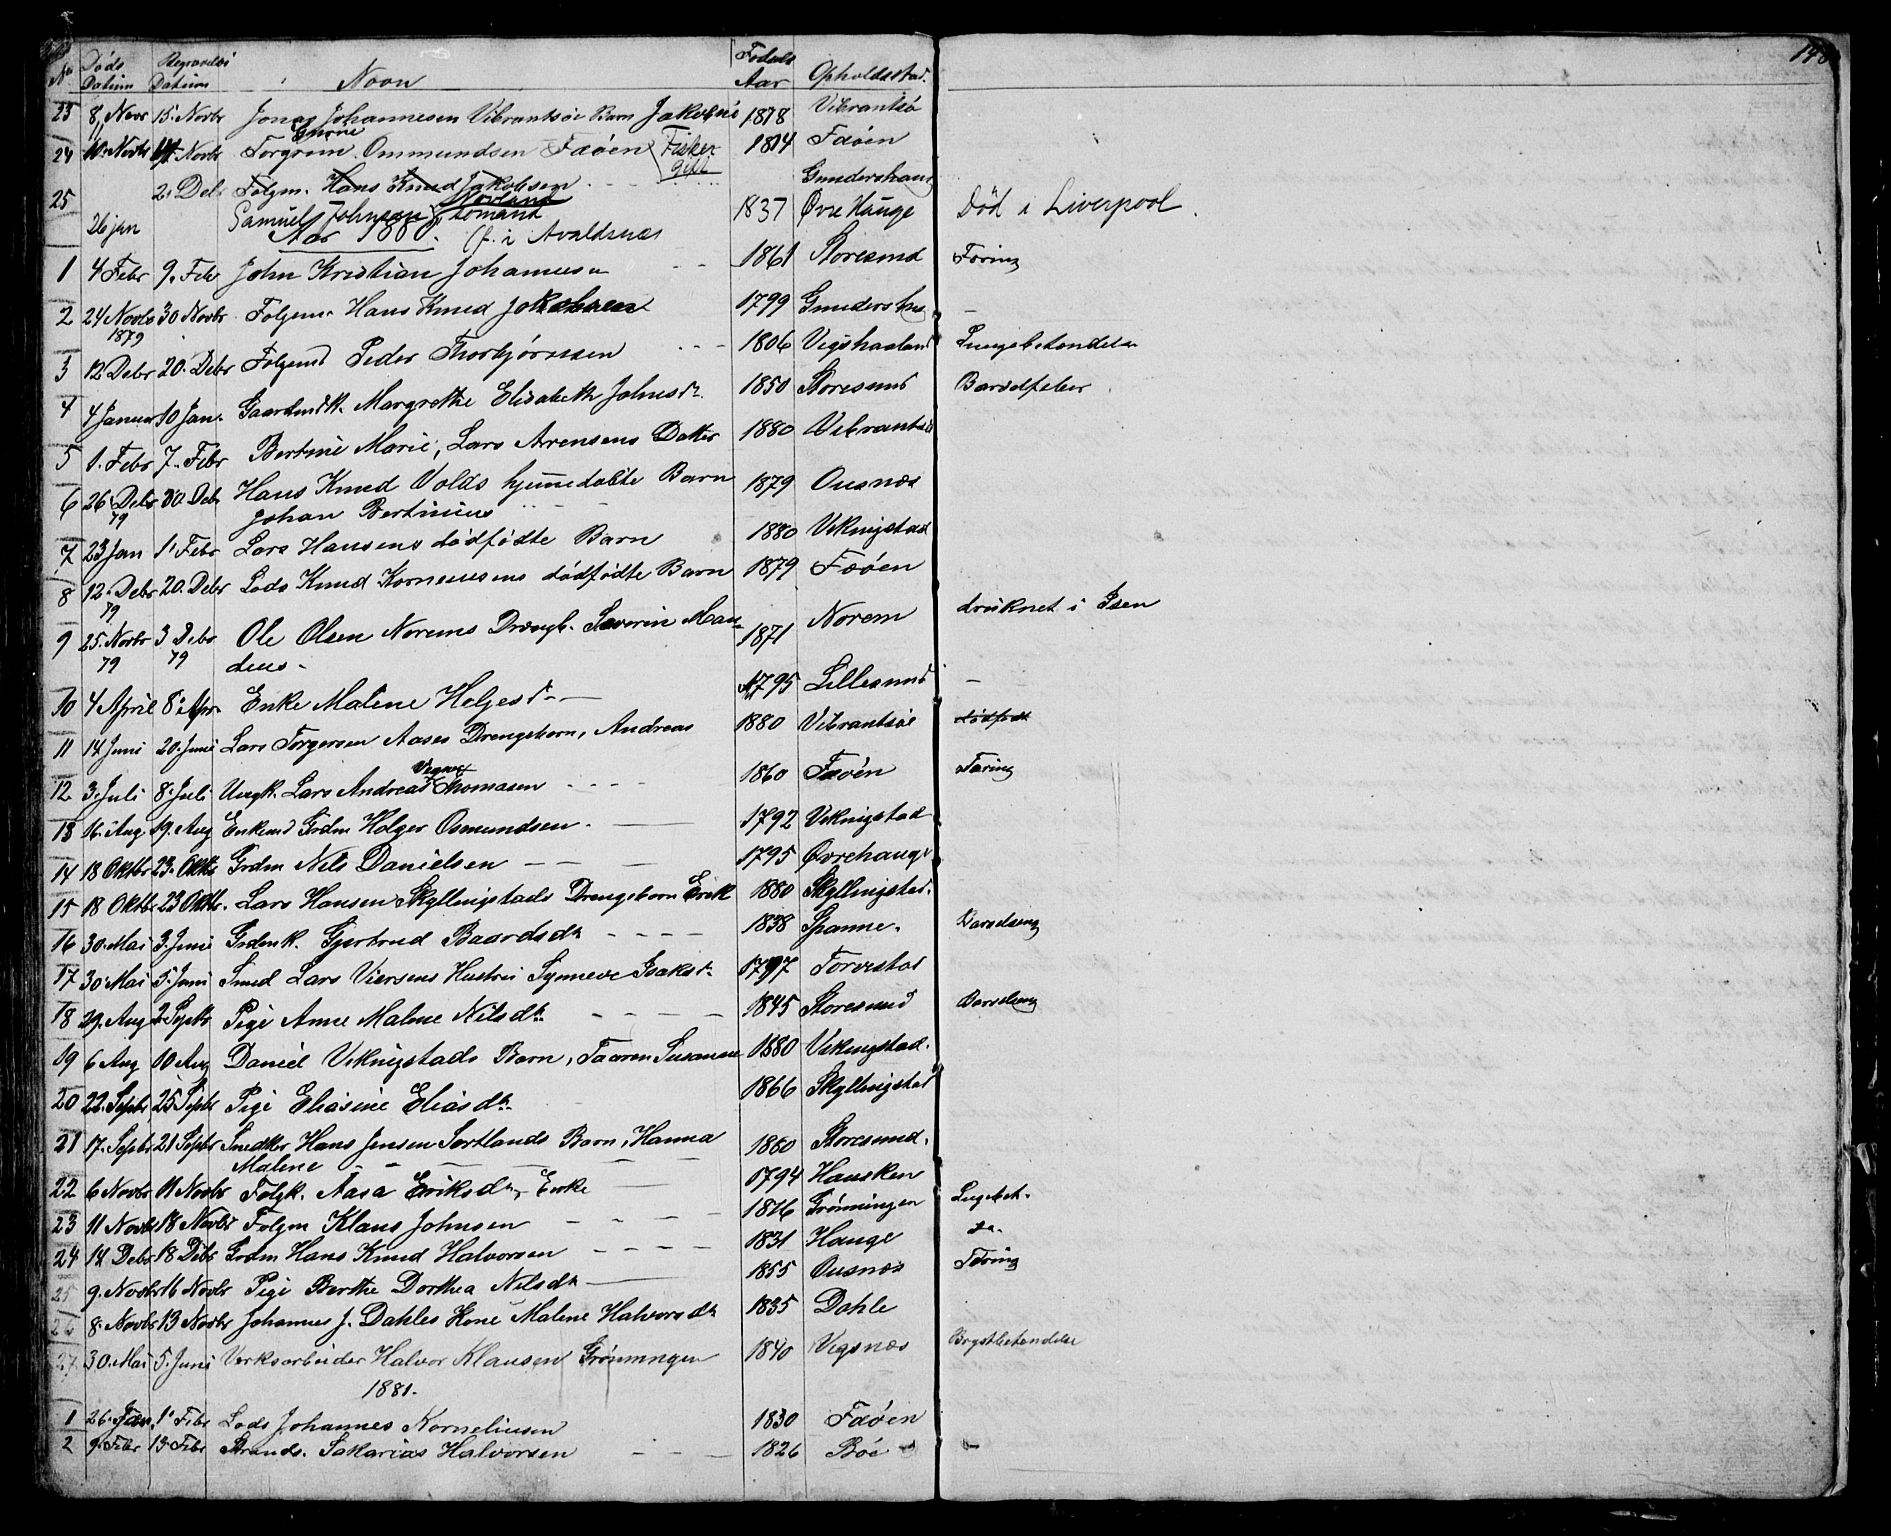 No Døds Datum Begravelses Datum Navn Fødsels Aar Opholdssted. 148
23 8 Novr 15. Novbr Jonas Johannesen Vibrantsöe Barn Jakobine 1878 Vibrantsö
24 10. Novbr 14 Novbr Torgrim Ommundsen Fæöen (Fisker 1814 Fæöen
gift
2. Debr Folgm. Hans Knud Jakobsen Gundershaug
25 26 jan Samuel Johnsen 1837 Øvre Hauge Död i Liverpool.
Aar 1880. (f. i Avaldsnæs
1 4 Febr 9. Febr John Kristian Johannesen 1861 Storesund Tæring
2 24 Novbr 30 Novbr Folgem. Hans Knud Jakobsen 1799 Gundershaug –
1879
3 12 Debr 20. Debr Folgemd Peder Thorbjørnsen 1806 Vigshaaland Lungebetændelse
4 4 Januar 10 Jan. Gaardmdk. Margrethe Elisabeth Johnsdr. 1850 Storesund Barselfeber
5 1. Febr 7. Febr Bertine Marie, Lars Arensens Datter 1880 Vibrantsö
6 26 Debr 30. Debr Hans Knud Volds hjemmedøbte Barn 1879 Ousnæs
79 Johan Bertinius
7 23 Jan 1' Febr Lars Hansens dödfödte Barn 1880 Vikingstad
8 12. Debr 20. Debr Lods Knud Korneliusens dödfödte Barn 1879 Fæöen
79
9 25. Novbr 3 Debr Ole Olsen Norems Drengb. Severin Man- 1871 Norem druknet i Isen
79 79 deus.
10 4 April 8. Apr. Enke Malene Helgesdr. 1795 Lillesund –
11 14 Juni 20. Juni Lars Torgersen Aases Drengebarn, Andreas 1880 Vibrantsöe dödfödt
12 3. Juli 8. Juli Ungk. Lars Andreas Thomasen 1860 Fæöen Tæring
13 16. Aug 19. Aug Enkemd Grdm Holger Osmundsen. 1792 Vikingstad
14 18 Oktbr 23. Oktbr Grdm Nils Danielsen 1795 Øvrehauge
15 18 Oktbr 23 Oktbr. Lars Hansen Skyllingstads Drengebarn Erik 1880 Skyllingstad.
16 30. Mai 3. Juni Grdmk. Gjertrud Baardsdtr 1838 Spanne. Barselseng
17 30. Mai 5. Juni Smed Lars Viersens Hustru Synneve Isaksdr. 1797 Torvestad
18 29. Aug 2. Septbr Pige Anne Malene Nilsdtr 1845 Storesund Barselseng
19 6 Aug 10 Aug Daniel Vikingstads Barn, Taaren Susanne 1880 Vikingstad.
20 22. Septbr 25 Septbr Pige Eliasine Eliasdtr 1866 Skyllingstad
21 17. Septbr 21 Septbr Snedker Hans Jensen Sørtlands Barn, Hanna 1880 Storesund.
Malene
22 6 Novbr 11 Novbr Folgk. Aasa Eriksdtr, Enke 1794 Hausken
23 11 Novbr 18 Novbr Folgm Klaus Johnsen 1816 Grönningen Lugebet.
24 14 Debr 18 Debr Grdm Hans Knud Halvorsen 1831 Hauge do.
25 9. Novbr 16 Novbr Pige Berthe Dorthea Nilsdtr 1855 Ousnæs Tæring
26 8. Novbr 13 Novbr Johannes J. Dahles Kone Malene Halvorsdtr 1835 Dahle
27 30. Mai 5. Juni Verksarbeider Halvor Klausen Grönningen 1840 Vigsnæs Brystbetændelse
1881.
1 26. Jan. 1' Febr Lods Johannes Korneliusen 1830 Fæöen
2 9. Febr 13. Febr Strands. Sakarias Halvorsen 1826 Böe –